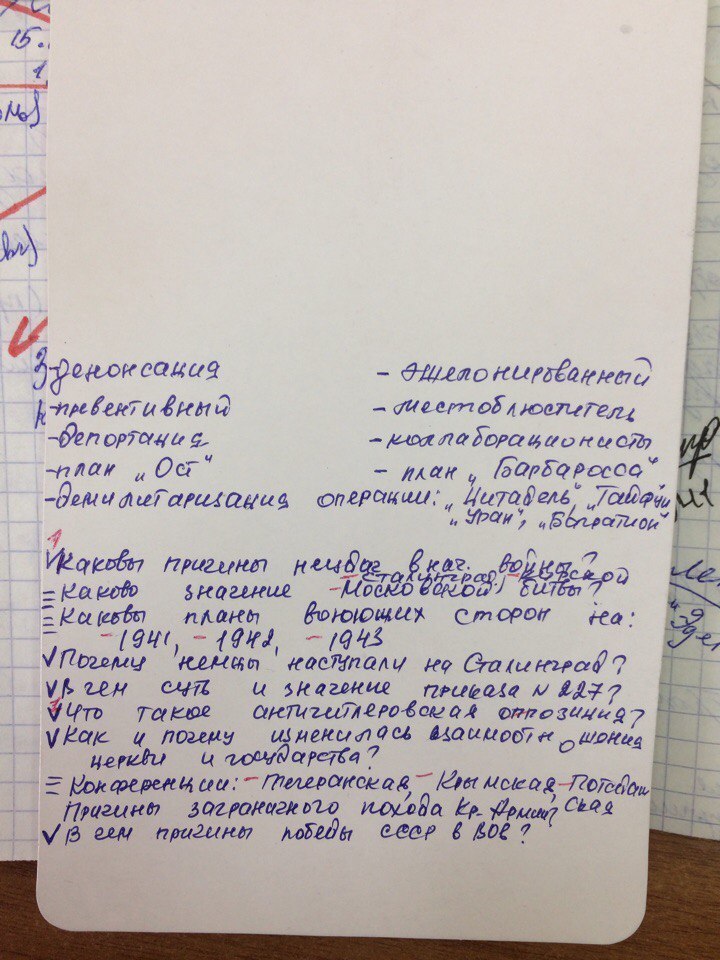 15.
1
-денонсация - эшелонированный
-превентивный - местоблюститель
-депортация - коллаборационисты
-план „Ост" - план „Барбаросса"
-демилитаризация операции: „Цитадель" „Тайфун"
„Уран", „Багратион"
1
Каковы причины неудач в нач. войны?
Сталинград, Курской
Каково значение - Московской битвы?
Каковы планы воюющих сторон на:
- 1941, - 1942, - 1943
Почему немцы наступали на Сталинград?
В чем суть и значение приказа N 227?
Что такое антигитлеровская оппозиция?
Как и почему изменилась взаимоотношения
церкви и государства?
Конференции: - Тегеранская, - Крымская, - Потсдам
ская
Причины заграничного похода Кр. Армии?
В чем причины победы СССР в ВОВ?